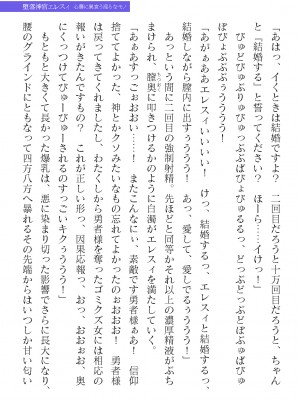 堕落神官エレスィ
「あはっ、イくときは結婚ですよ？　二回目だろうと十万回目だろうと、ちゃん
と『結婚する』と誓ってください？　ほーらーーイけっ！」
「あがぁああエレスィいいいい！　けっ、結婚するっ、エレスィと結婚するっ、
結婚しながら膣内に出すぅううう！　あっ、愛して、愛してるぅううう！」
あっという間に二回目の強制射精。先ほどと同等かそれ以上の濃厚精液がぶち
まけられ、膣奥に叩きつけるかのように白濁がエレスィを満たしていく。
「ああぁすっごぉぉおお……！　またこんなにぃ、素敵です勇者様ぁあ！　信仰
捨ててよかった、神とかクソみたいなもの忘れてよかったのぉおおお！　勇者様
は戻ってきてくれましたし、わたくしから勇者様を奪ったゴミクズ女には相応の
報いがきたんですもの？　これが正しい形っ、因果応報っ、おっ、おぉぉお、奥
にくっつけてびゅーびゅーされるのすっごいキクぅううう！」
もともと大きくて長かった爆乳は、悪に染まり切った影響でさらに長大になり、
腰のグラインドにともなって四方八方へ暴れるその先端からはいつしか甘い匂い